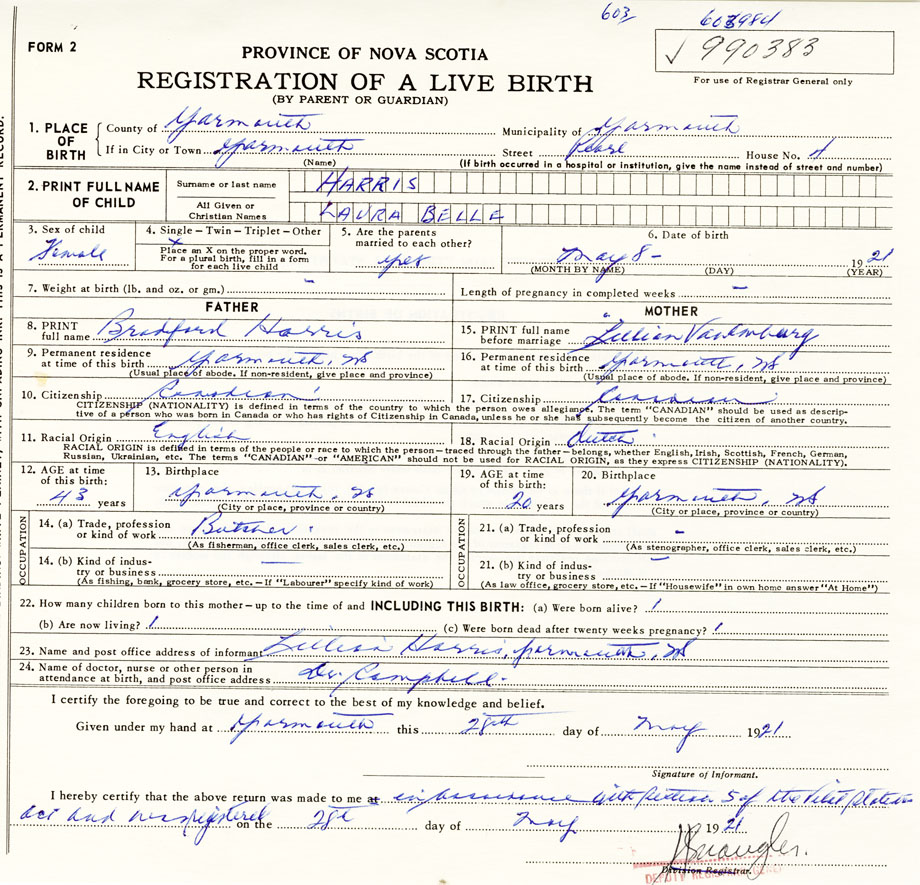 603 603984
FORM 2
PROVINCE OF NOVA SCOTIA
√ 990383
REGISTRATION OF A LIVE BIRTH
For use of Registrar General only
(BY PARENT OR GUARDIAN)
1. PLACE OF BIRTH
County of Yarmouth Municipality of Yarmouth
If in City or Town Yarmouth Street Pearl House No.
(Name) (If birth occurred in a hospital or institution, give the name instead of street and number)
2. PRINT FULL NAME OF CHILD
Surname or last name HARRIS
All Given or Christian Names LAURA BELLE
3. Sex of child Female
4. Single — Twin — Triplet — Other
x
Place an X on the proper word.
For a plural birth, fill in a form
for each live child
5. Are the parents
married to each other?
yes
6. Date of birth
May 8 - 1921
(MONTH BY NAME) (DAY) (YEAR)
7. Weight at birth (lb. and oz. or gm.) - Length of pregnancy in completed weeks -
FATHER
8. PRINT
full name Bradford Harris
9. Permanent residence
at time of this birth Yarmouth, NS
(Usual place of abode. If non-resident, give place and province)
10. Citizenship Canadian
MOTHER
15. PRINT full name
before marriage Lillian
16. Permanent residence
at time of this birth Yarmouth, NS
(Usual place of abode. If non-resident, give place and province)
17. Citizenship Canadian
CITIZENSHIP (NATIONALITY) is defined in terms of the country to which the person owes allegiance. The term "CANADIAN" should be used as descrip-
tive of a person who was born in Canada or who has rights of Citizenship in Canada, unless he or she has subsequently become the citizen of another country.
11. Racial Origin English 18. Racial Origin Dutch
RACIAL ORIGIN is defined in terms of the people or race to which the person — traced through the father — belongs, whether English, Irish, Scottish, French, German,
Russian, Ukrainian, etc. The terms "CANADIAN" or "AMERICAN" should not be used for RACIAL ORIGIN, as they express CITIZENSHIP (NATIONALITY).
12. AGE at time
of this birth:
43 years
13. Birthplace
Yarmouth, NS
(City or place, province or country)
19. AGE at time
of this birth:
20 years
20. Birthplace
Yarmouth, NS
(City or place, province or country)
OCCUPATION
14. (a) Trade, profession
or kind of work Butcher
(As fisherman, office clerk, sales clerk, etc.)
14. (b) Kind of indus-
try or business —
(As fishing, bank, grocery store, etc. — If "Labourer" specify kind of work)
OCCUPATION
21. (a) Trade, profession
or kind of work -
(As stenographer, office clerk, sales clerk, etc.)
21. (b) Kind of indus-
try or business -
(As law office, grocery store, etc. — If "Housewife" in own home answer "At Home")
22. How many children born to this mother — up to the time of and INCLUDING THIS BIRTH: (a) Were born alive? 1
(b) Are now living? 1 (c) Were born dead after twenty weeks pregnancy?
23. Name and post office address of informant Lillian Harris, Yarmouth, NS
24. Name of doctor, nurse or other person in
attendance at birth, and post office address Dr. Campbell
I certify the foregoing to be true and correct to the best of my knowledge and belief.
Given under my hand at Yarmouth this 28th day of May 1921
Signature of Informant.
I hereby certify that the above return was made to me at in with section 5 of the
act and was registered on the 28th day of May 1921
Division Registrar.
DEPUTY REGISTRAR